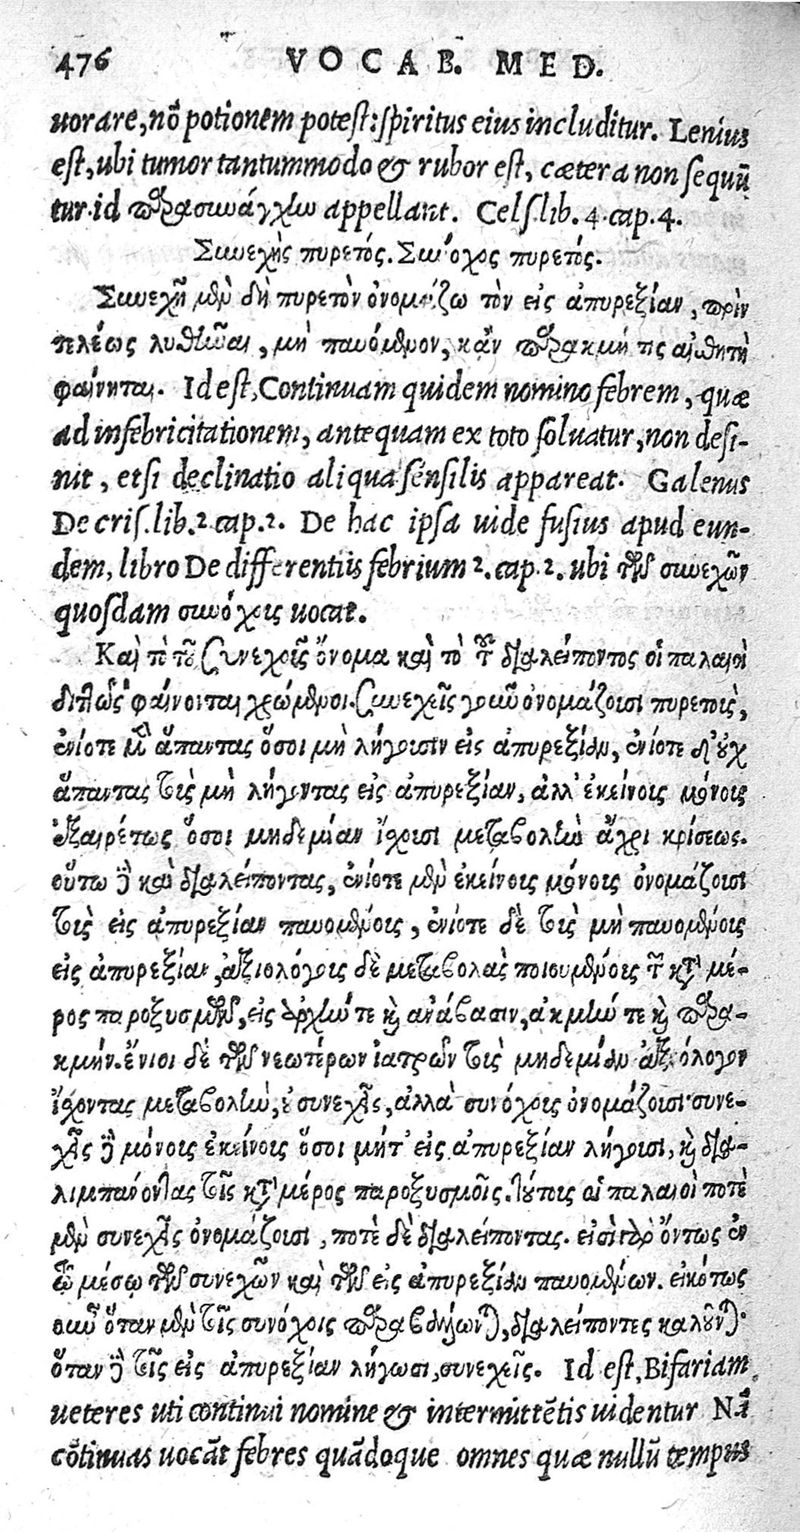 476 VOCAB. MED.
uorare, nō potionem potest: spiritus eius includitur. Lenius
est, ubi tumor tantummodo & rubor est, cætera non sequū
tur. id παρασυνάγχην appellant. Cels. lib. 4. cap. 4.
Συνεχὴς πυρετός. Σύνοχος πυρετός.
Συνεχῆ μὲν δὴ πυρετὸν ὀνομάζω τὸν εἰς ἀπυρεξίαν, πρὶν
τελέως λυθῆναι, μὴ παυόμενον, κἂν παρακμή τις αἰσθητὴ
φαίνηται. Id est, Continuam quidem nomino febrem, quæ
ad infebricitationem, antequam ex toto soluatur, non desi-
nit, etsi declinatio aliqua sensilis appareat. Galenus
De cris. lib. 2. cap. 2. De hac ipsa uide fusius apud eun-
dem, libro De differentiis febrium 2. cap. 2. ubi τῶν συνεχῶν
quosdam συνόχους uocat.
Καὶ τὸ τοῦ συνεχοῦς ὄνομα καὶ τὸ τοῦ διαλείποντος οἱ παλαιοὶ
διττῶς φαίνονται χρώμενοι. συνεχεῖς γὰρ ὀνομάζουσι πυρετοὺς,
ἐνίοτε μὲν ἅπαντας ὅσοι μὴ λήγουσιν εἰς ἀπυρεξίαν, ἐνίοτε δ' οὐχ
ἅπαντας τοὺς μὴ λήγοντας εἰς ἀπυρεξίαν, ἀλλ' ἐκείνους μόνους
ἐξαιρέτως ὅσοι μηδεμίαν ἴσχουσι μεταβολὴν ἄχρι κρίσεως.
οὕτω δὲ καὶ διαλείποντας, ἐνίοτε μὲν ἐκείνους μόνους ὀνομάζουσι
τοὺς εἰς ἀπυρεξίαν παυομένους, ἐνίοτε δὲ τοὺς μὴ παυομένους
εἰς ἀπυρεξίαν, ἀξιολόγους δὲ μεταβολὰς ποιουμένους τῶν κατὰ μέ-
ρος παροξυσμῶν, εἰς ἀρχήν τε καὶ ἀνάβασιν, ἀκμήν τε καὶ παρα-
κμήν. ἔνιοι δὲ τῶν νεωτέρων ἰατρῶν τοὺς μηδεμίαν ἀξιόλογον
ἴσχοντας μεταβολὴν, οὐ συνεχεῖς, ἀλλὰ συνόχους ὀνομάζουσι· συνε-
χεῖς δὲ μόνους ἐκείνους ὅσοι μήτ' εἰς ἀπυρεξίαν λήγουσι, καὶ δια-
λιμπάνοντας τοῖς κατὰ μέρος παροξυσμοῖς. τούτους οἱ παλαιοὶ ποτὲ
μὲν συνεχεῖς ὀνομάζουσι, ποτὲ δὲ διαλείποντας. εἰσὶ γὰρ ὄντως ἐν
τῷ μέσῳ τῶν συνεχῶν καὶ τῶν εἰς ἀπυρεξίαν παυομένων. εἰκότως
οὖν ὅταν μὲν τοῖς συνόχοις παραβάλλωνται, διαλείποντες καλοῦνται·
ὅταν δὲ τοῖς εἰς ἀπυρεξίαν λήγουσι, συνεχεῖς. Id est, Bifariam
ueteres uti continui nomine & intermittētis uidentur Nā
cōtinuas uocāt febres quādoque omnes quæ nullū tempus